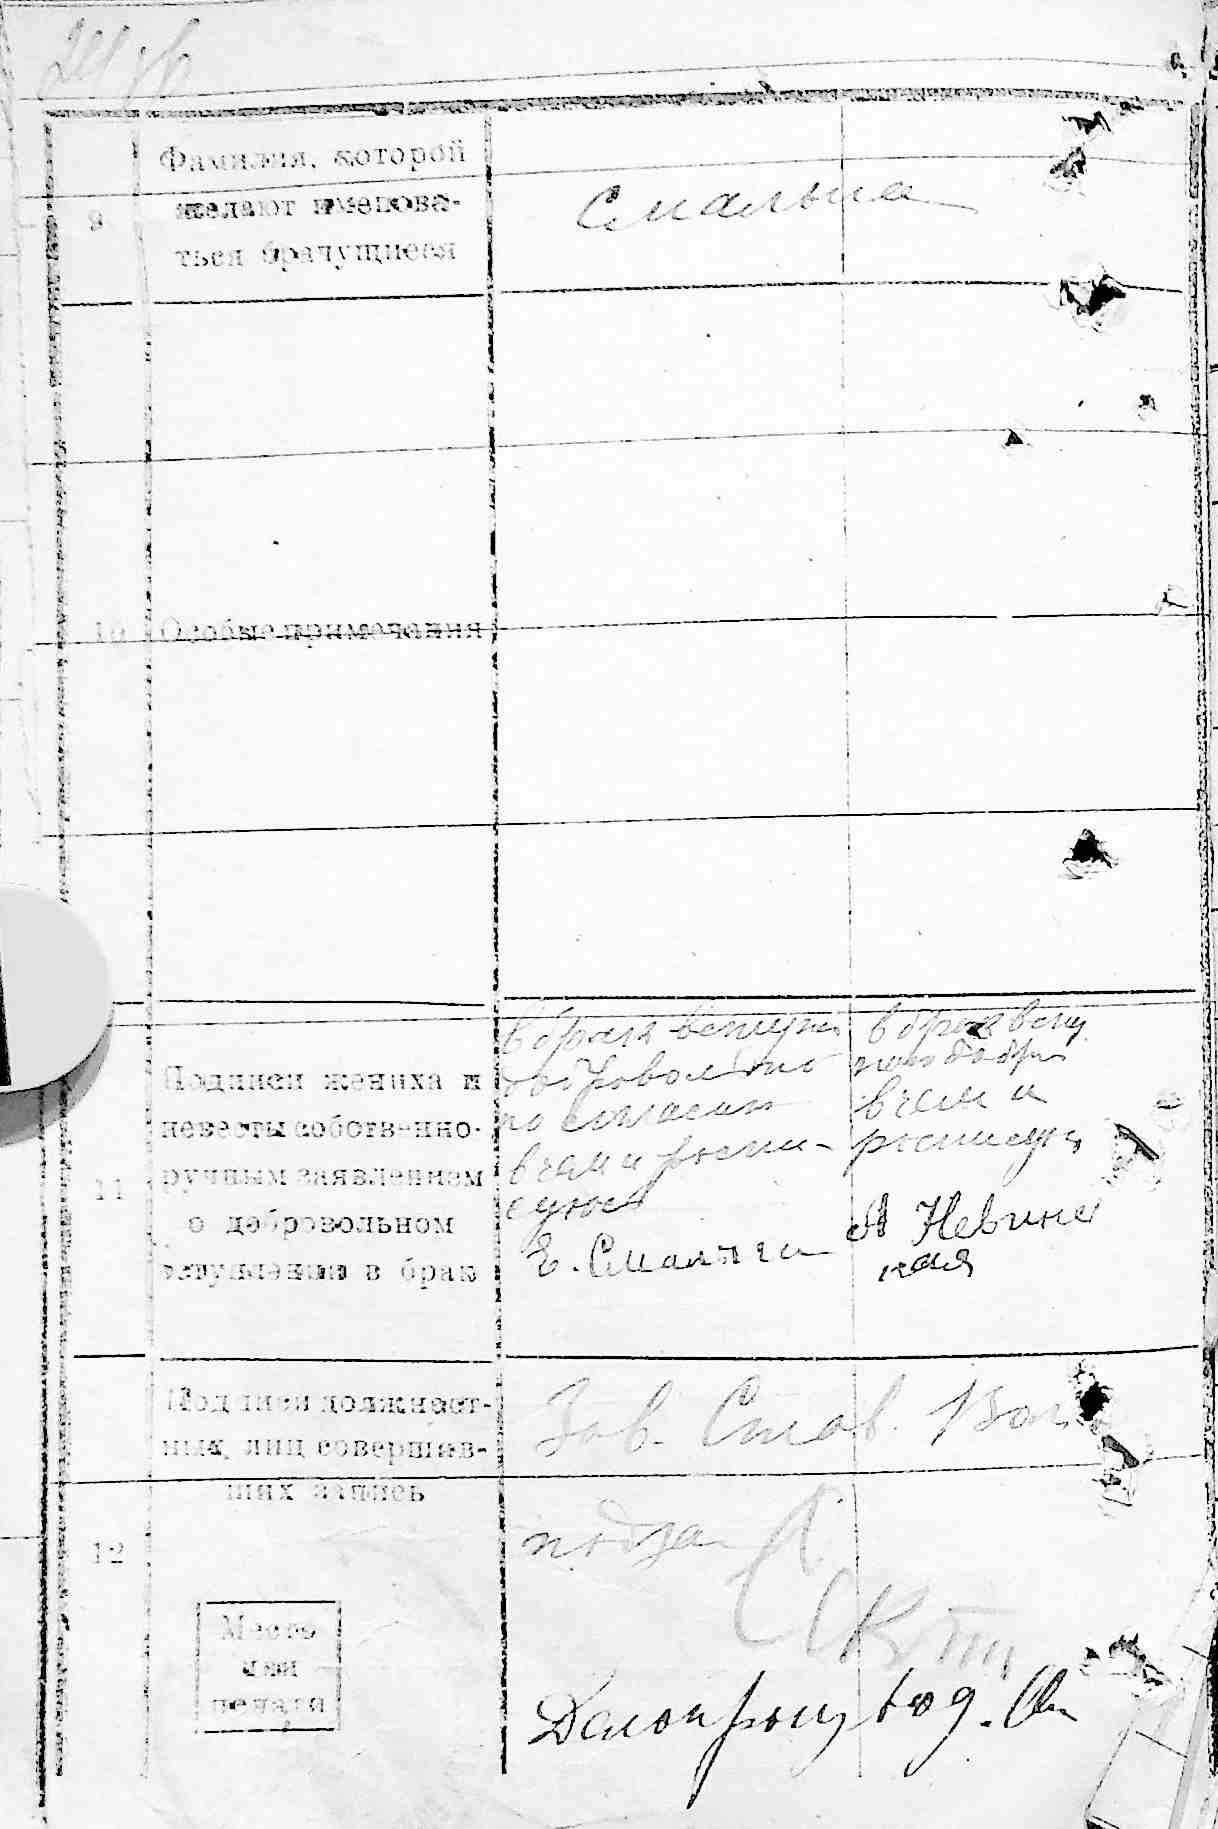 9
Фамилия, которой
желают именова-
ться брачущиеся
Смалыга
10 Особые примечания
11
Подписи жениха и
невесты собственно-
ручным заявлением
о добровольном
вступлении в брак
в брак вступаю
добровольно
по согласию
в чем и распи-
суюсь
Е. Смалыга
в брак всту
в чем и
росписуюсь
А Невинс
кая
12
Подписи должност-
ных лиц совершав-
ших запись
Место
для
печати
Зав. Стол.
подза
Делопроизвод.